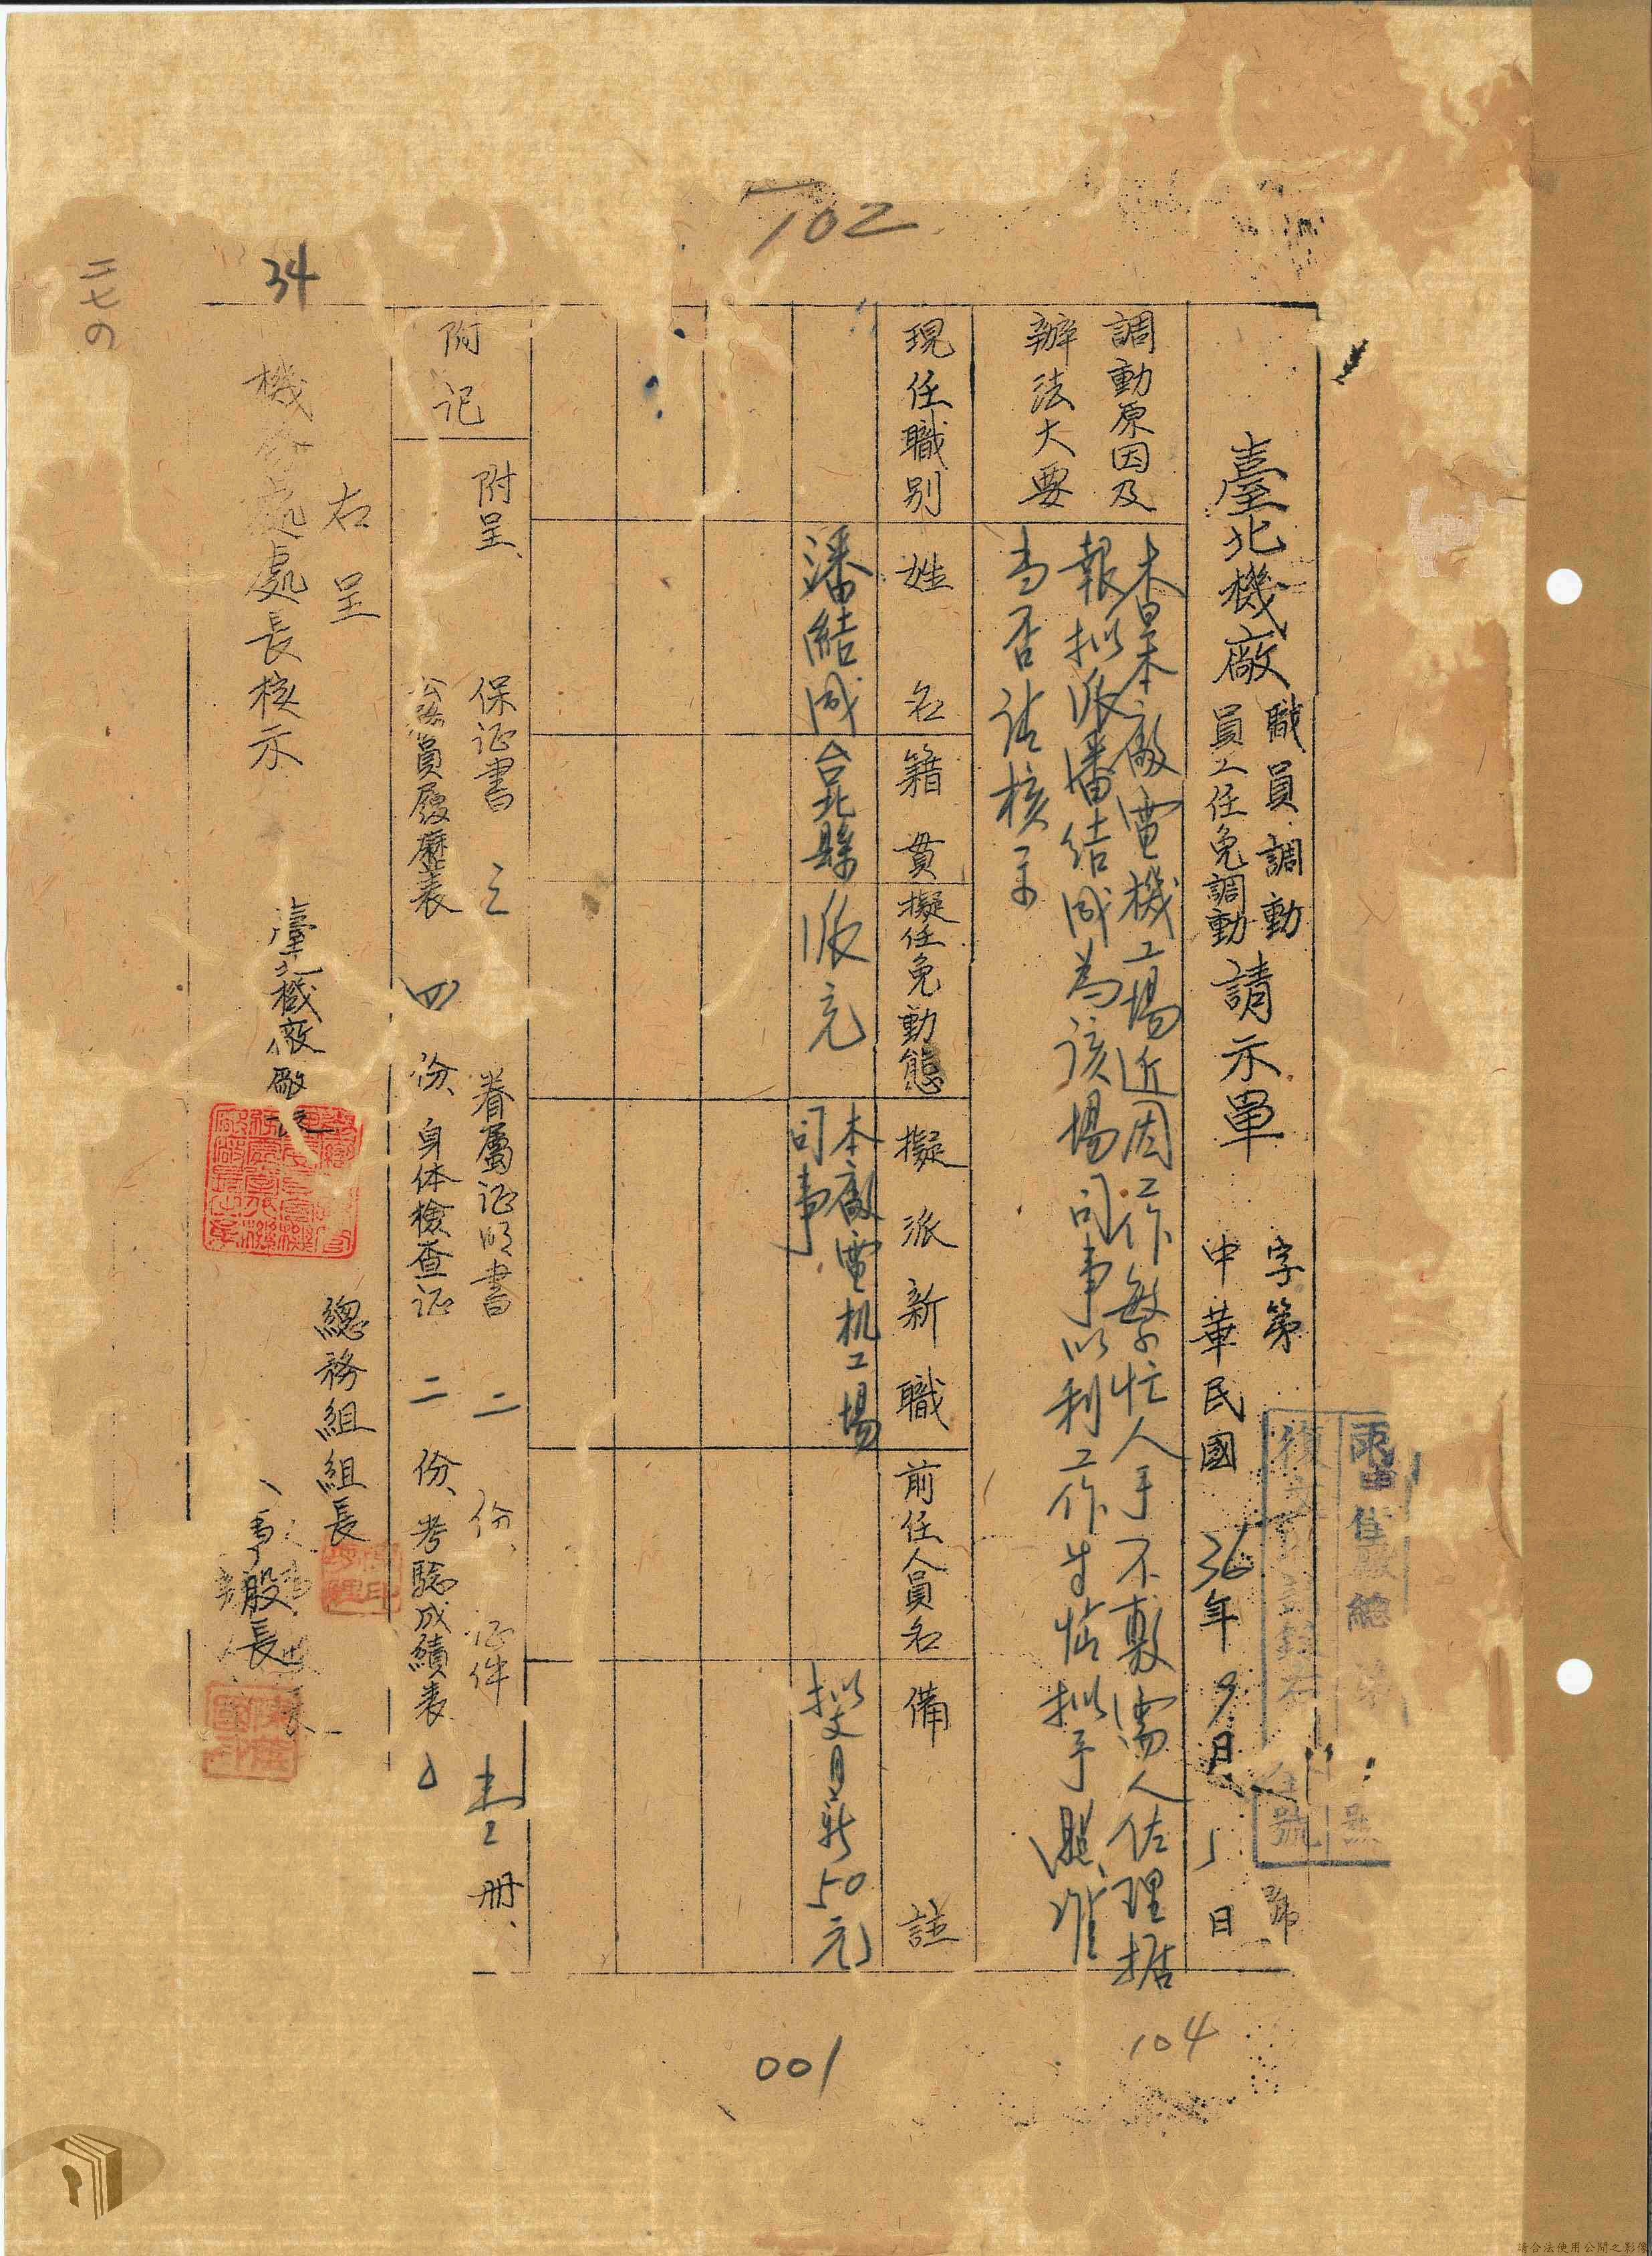 臺北機廠
職員調動
員工任免調動
請示單
字第 號
中華民國36年9月5日
調動原因及
辦法大要
查本廠電機工場近因工作繁忙人手不敷需人佐理據
報擬派潘結成為該場司事以利工作等情擬予照准
當否請核示
現任職別
姓名
籍貫
擬任免動態
擬派新職
前任人員名
備註
潘結成
台北縣
派充
本廠電机工場
司事
擬支月薪50元
附記
附呈、保证書 三 眷屬证明書 二 份、证件 壹 册、
公務員履歷表 四 份、身体檢查证 二 份、考驗成績表
右呈
機務處處長核示
臺北機廠廠長
總務組組長
股長
102
34
二七の
104
001
請合法使用公開之影像